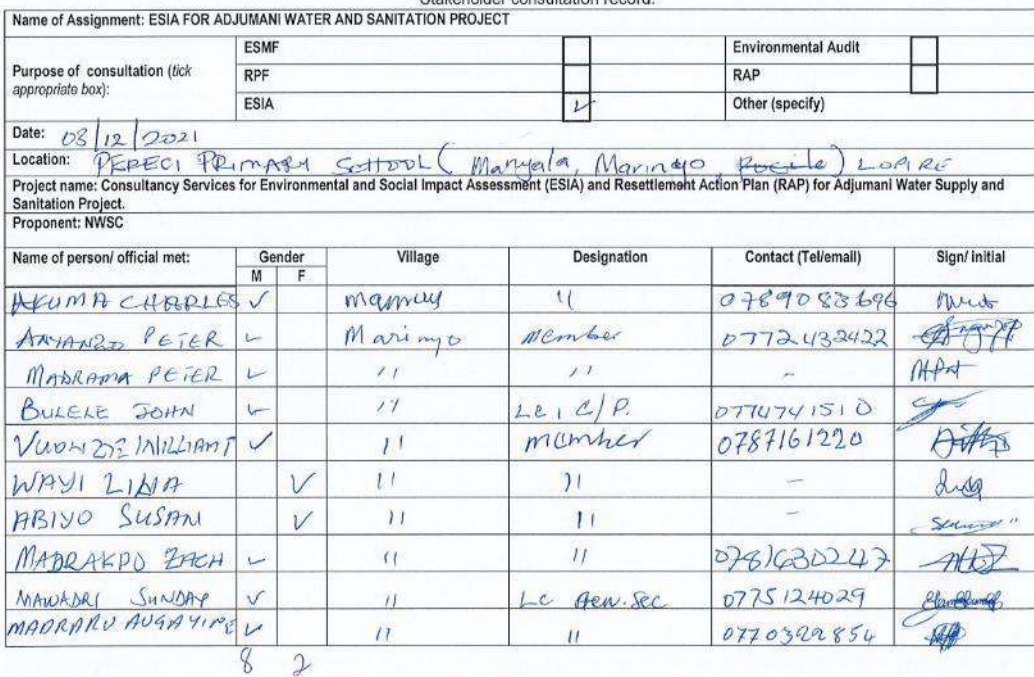 Stakeholder consultation record.
Name of Assignment: ESIA FOR ADJUMANI WATER AND SANITATION PROJECT
Purpose of consultation (tick appropriate box):
ESMF Environmental Audit
RPF RAP
ESIA ✓ Other (specify)
Date: 03/12/2021
Location: PERECI PRIMARY SCHOOL (Manyala, Marinyo, ) LOPIRE
Project name: Consultancy Services for Environmental and Social Impact Assessment (ESIA) and Resettlement Action Plan (RAP) for Adjumani Water Supply and
Sanitation Project.
Proponent: NWSC
Name of person/ official met: Gender Village Designation Contact (Tel/email) Sign/ initial
M F
AKUMA CHARLES ✓ '' 0789083696
ANYANZO PETER ✓ Marinyo member 0772432422
MADRAMA PETER ✓ '' '' -
BULELE JOHN ✓ '' LC1 C/P. 0774741510
✓ '' member 0787161220
WAYI LINA ✓ '' '' -
ABIYO SUSAN ✓ '' '' -
MADRAKPO ZACH ✓ '' '' 0781630247
MAWADRI SUNDAY ✓ '' LC Gen. Sec 0775124029
MADRARU ✓ '' '' 0770392854
8 2